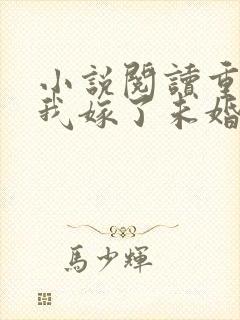 小說閱讀重
我嫁了未婚
馬少輝